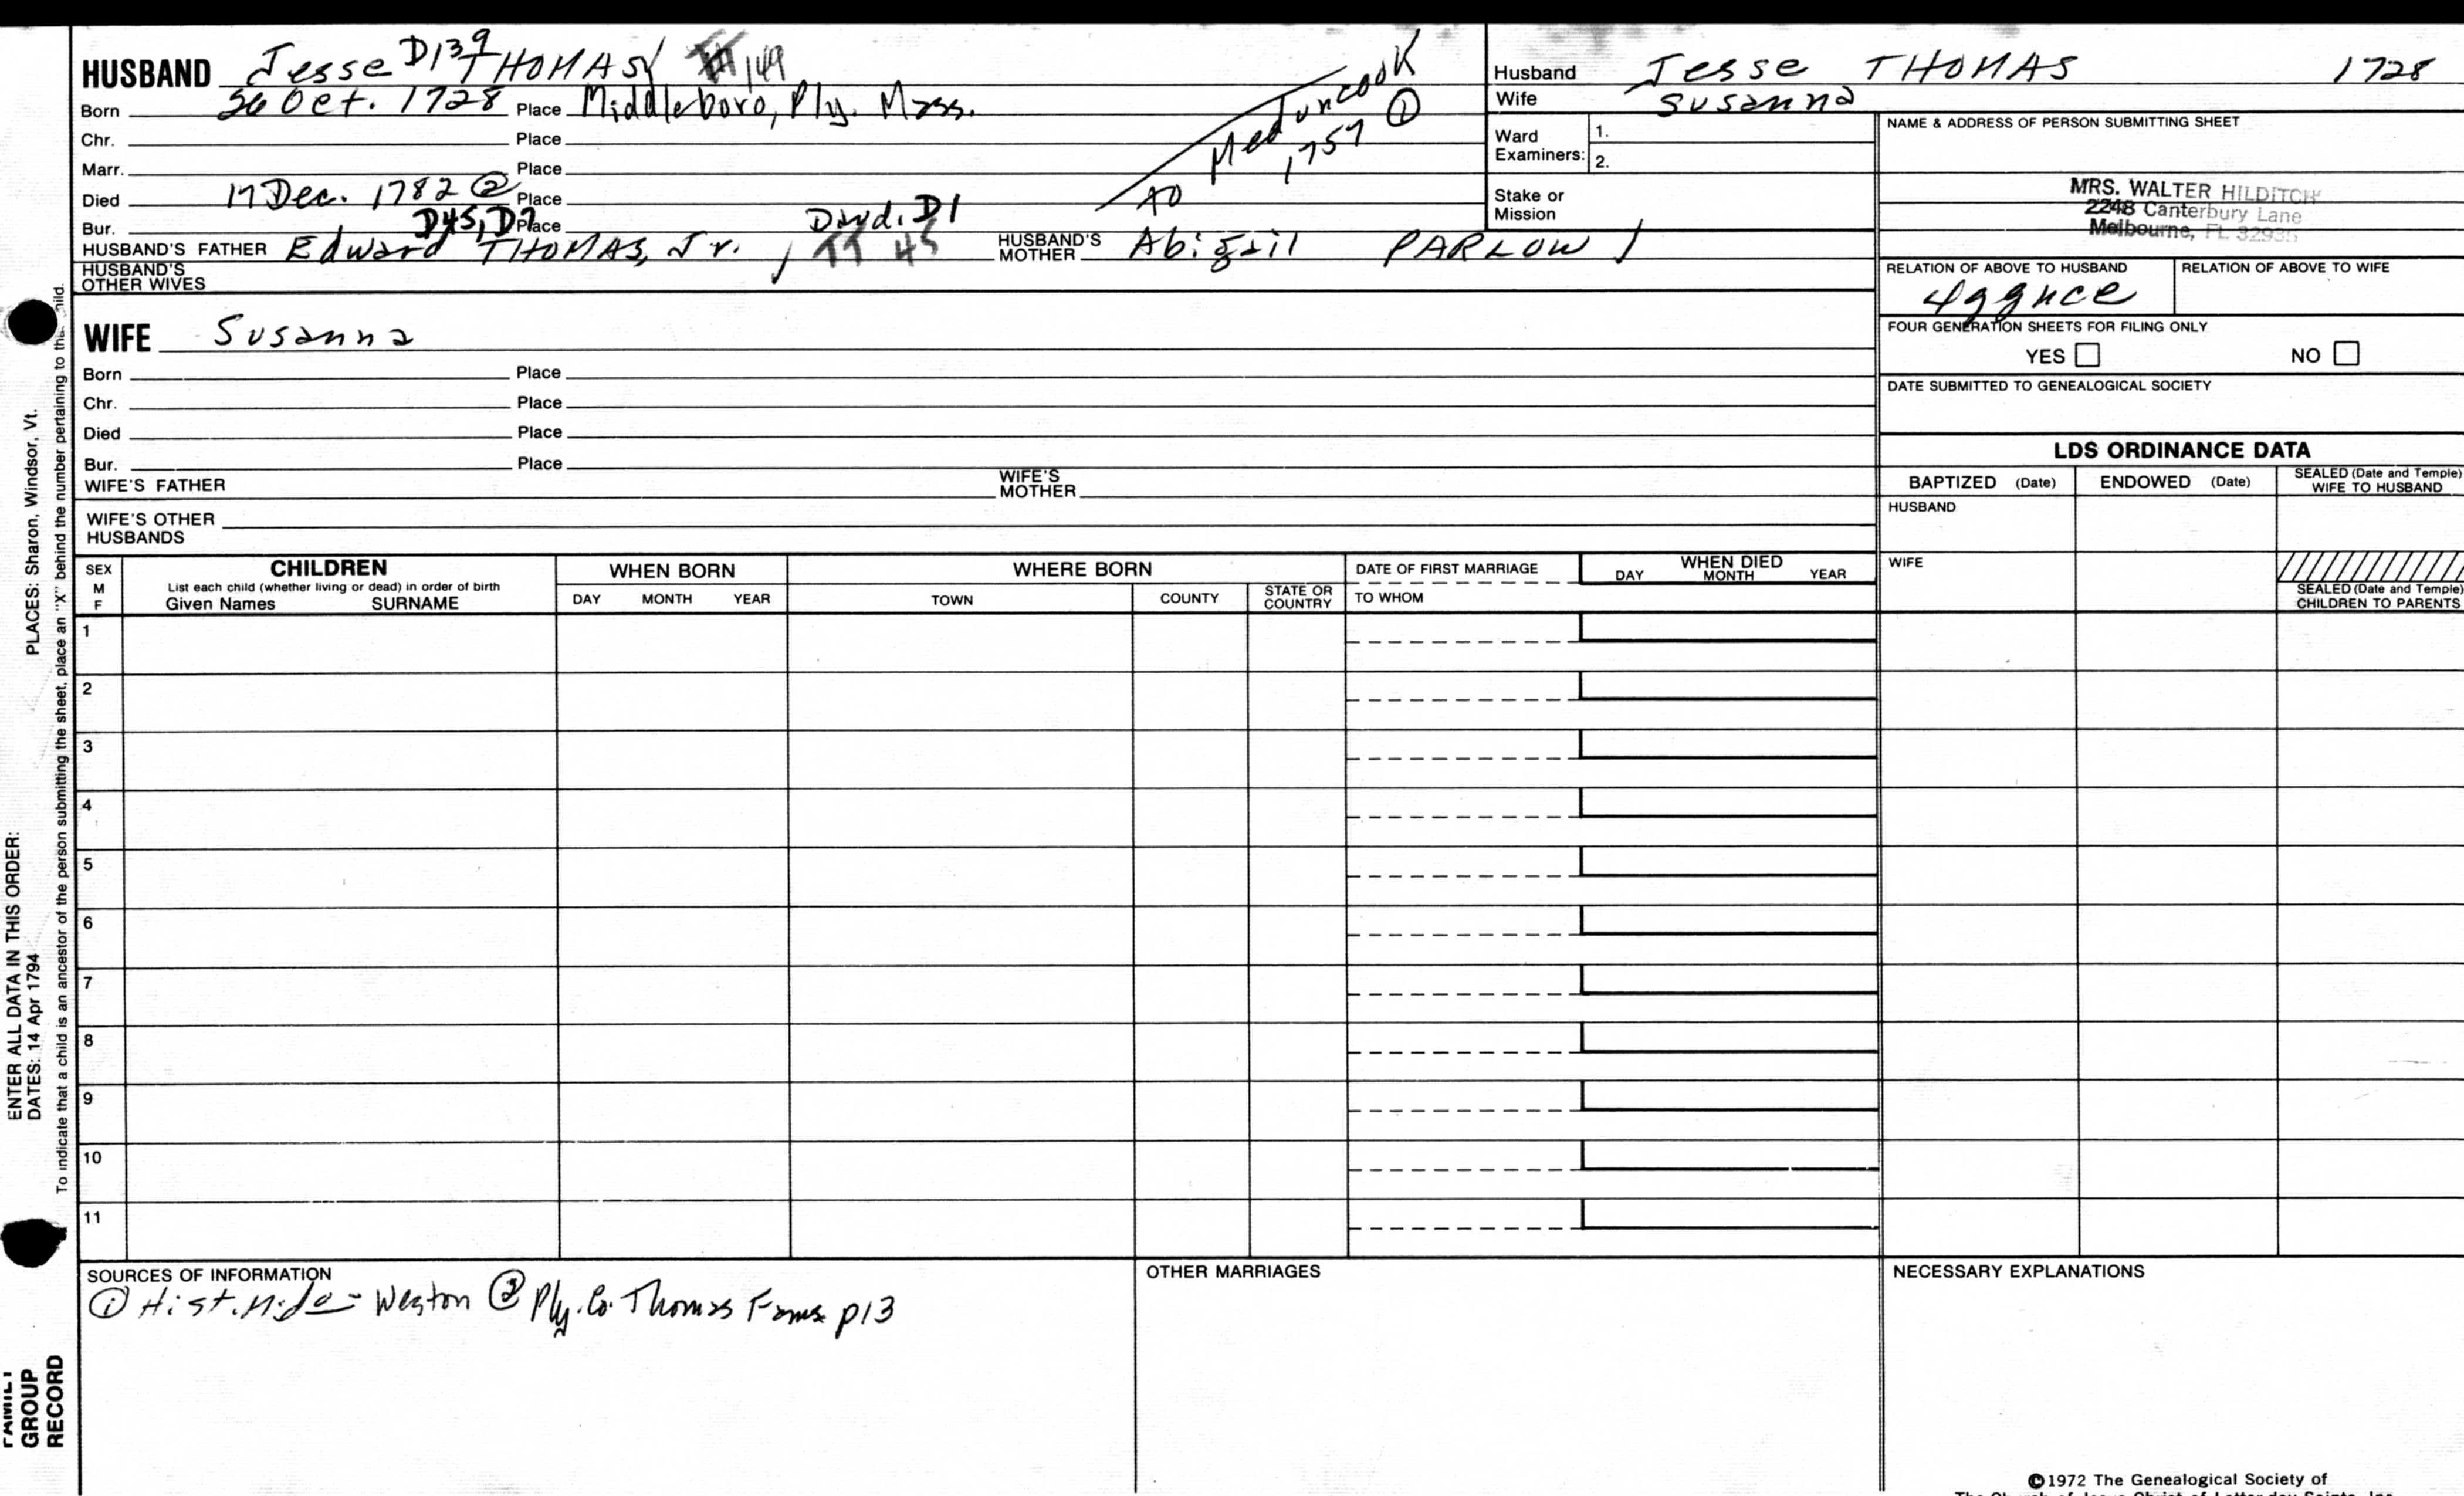 HUSBAND Jesse D139 THOMAS 149
Born 26 Oct. 1728 Place Middleboro, Ply. Mass.
Chr. Place
Marr. Place
Died 17 Dec. 1782 ② Place
Bur. D45, D7 Place Dwd. D1
to Meduncook ① 1757
HUSBAND'S FATHER Edward THOMAS, Jr. / TT 45 HUSBAND'S MOTHER Abigail PARLOW /
HUSBAND'S OTHER WIVES
Husband Jesse THOMAS 1728
Wife Susanna
Ward Examiners: 1.
2.
Stake or Mission
NAME & ADDRESS OF PERSON SUBMITTING SHEET
MRS. WALTER HILDITCH
2248 Canterbury Lane
Melbourne, FL 32935
RELATION OF ABOVE TO HUSBAND RELATION OF ABOVE TO WIFE
4ggnce
FOUR GENERATION SHEETS FOR FILING ONLY
YES NO
DATE SUBMITTED TO GENEALOGICAL SOCIETY
WIFE Susanna
Born Place
Chr. Place
Died Place
Bur. Place
WIFE'S FATHER WIFE'S MOTHER
WIFE'S OTHER HUSBANDS
LDS ORDINANCE DATA
BAPTIZED (Date) ENDOWED (Date) SEALED (Date and Temple) WIFE TO HUSBAND
HUSBAND
WIFE
SEALED (Date and Temple) CHILDREN TO PARENTS
SEX M F
CHILDREN
List each child (whether living or dead) in order of birth
Given Names SURNAME
WHEN BORN
DAY MONTH YEAR
WHERE BORN
TOWN COUNTY STATE OR COUNTRY
DATE OF FIRST MARRIAGE
TO WHOM
WHEN DIED
DAY MONTH YEAR
1
2
3
4
5
6
7
8
9
10
11
SOURCES OF INFORMATION
① Hist. Mido - Weston ② Ply. Co. Thomas Fams p13
OTHER MARRIAGES
NECESSARY EXPLANATIONS
©1972 The Genealogical Society of
The Church of Jesus Christ of Latter-day Saints, Inc.
ENTER ALL DATA IN THIS ORDER:
DATES: 14 Apr 1794 PLACES: Sharon, Windsor, Vt.
To indicate that a child is an ancestor of the person submitting the sheet, place an "X" behind the number pertaining to that child.
FAMILY
GROUP
RECORD